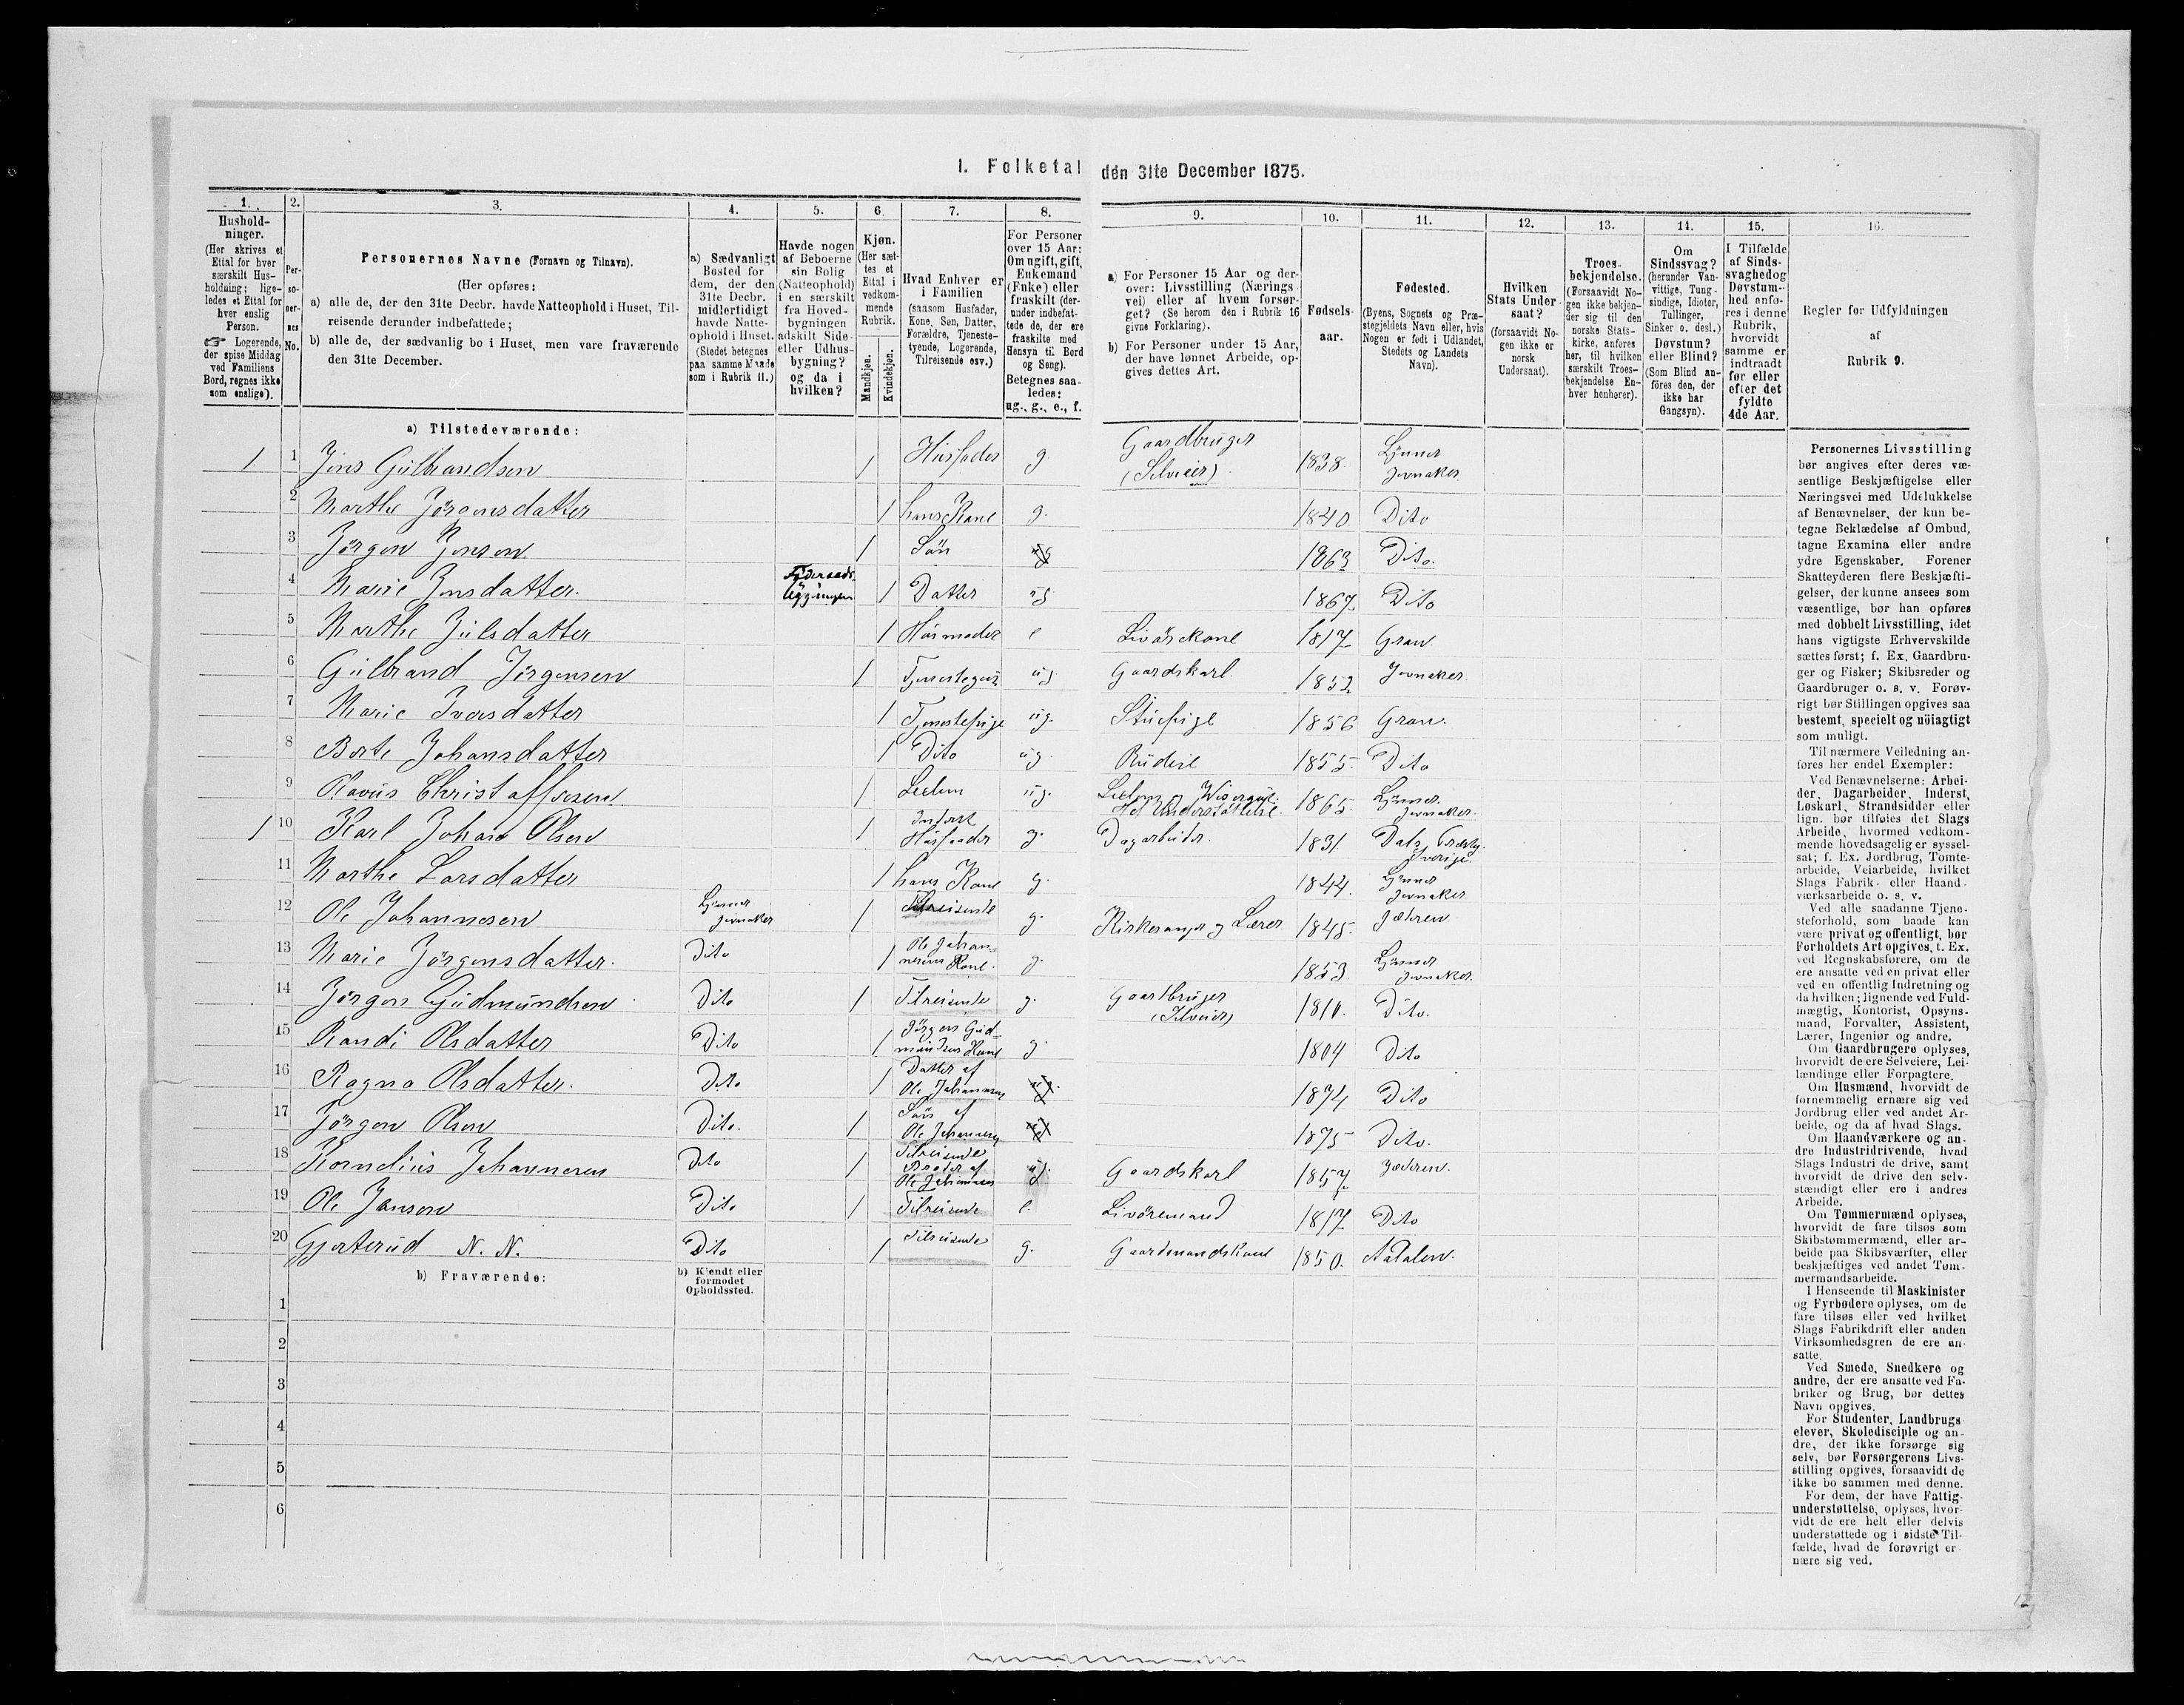 I. Folketal den 31te December 1875.
1.
Hushold-
ninger.
(Her skrives et
Ettal for hver
særskilt Hus-
holdning; lige-
ledes et Ettal for
hver enslig
Person.
☞ Logerende,
der spise Middag
ved Familiens
Bord, regnes ikke
som enslige).
2.
Per-
so-
ner-
nes
No.
3.
Personernes Navne (Fornavn og Tilnavn).
(Her opføres:
a) alle de, der den 31te Decbr. havde Natteophold i Huset, Til-
reisende derunder indbefattede;
b) alle de, der sædvanlig bo i Huset, men vare fraværende
den 31te December.
4.
a) Sædvanligt
Bosted for
dem, der den
31te Decbr.
midlertidigt
havde Natte-
ophold i Huset.
(Stedet betegnes
paa samme Maade
som i Rubrik 11.)
5.
Havde nogen
af Beboerne
sin Bolig
(Natteophold)
i en særskilt
fra Hoved-
bygningen
adskilt Side-
eller Udhus-
bygning?
og da i
hvilken?
6.
Kjøn.
(Her sæt-
tes et
Ettal i
vedkom-
mende
Rubrik.
Mandkjøn.
Kvindekjøn.
7.
Hvad Enhver er
i Familien
(saasom Husfader,
Kone, Søn, Datter,
Forældre, Tjeneste-
tyende, Logerende,
Tilreisende osv.)
8.
For Personer
over 15 Aar:
Om ugift, gift,
Enkemand
(Enke) eller
fraskilt (der-
under indbefat-
tede de, der ere
fraskilte med
Hensyn til Bord
og Seng).
Betegnes saa-
ledes:
ug., g., e., f.
9.
a) For Personer 15 Aar og der-
over: Livsstilling (Nærings-
vei) eller af hvem forsør-
get? (Se herom den i Rubrik 16
givne Forklaring).
b) For Personer under 15 Aar,
der have lønnet Arbeide, op-
gives dettes Art.
10.
Fødsels-
aar.
11.
Fødested.
(Byens, Sognets og Præ-
stegjeldets Navn eller, hvis
Nogen er født i Udlandet,
Stedets og Landets
Navn).
12.
Hvilken
Stats Under-
saat?
(forsaavidt No-
gen ikke er
norsk
Undersaat).
13.
Troes-
bekjendelse.
(Forsaavidt No-
gen ikke bekjen-
der sig til den
norske Stats-
kirke, anføres
her, til hvilken
særskilt Troes-
bekjendelse En-
hver henhører).
14.
Om
Sindssvag?
(herunder Van-
vittige, Tung-
sindige, Idioter,
Tullinger,
Sinker o. desl.)
Døvstum?
eller Blind?
(Som Blind an-
føres den, der
ikke har
Gangsyn).
15.
I Tilfælde
af Sinds-
svaghed og
Døvstum-
hed anfø-
res i denne
Rubrik,
hvorvidt
samme er
indtraadt
før eller
efter det
fyldte
4de Aar.
16.
Regler for Udfyldningen
af
Rubrik 9.
a) Tilstedeværende:
1 1 Jens Gulbrandsen 1 Husfader g. Gaardbruger (Selveier) 1838. Lunner Jevnaker
2 Marthe Jörgensdatter 1 hans Kone g. 1840 Dito
3 Jörgen Jensen 1 Sön ug 1863 Dito.
4 Marie Jensdatter. 1 Datter ug 1867. Dito
5 Marthe Julsdatter 1 Husmoder e Livörekone 1817 Gran
6 Gulbrand Jörgensen 1 ug. Gaardskarl 1852 Jevnaker
7 Marie Iversdatter 1 Tjenestepige ug. Stuepige 1856 Gran.
8 Berte Johansdatter 1 Dito ug. Budeie 1855. Dito
9 Olavus Christoffersen 1 Leilem ug. 1865. Lunner Jevnaker.
1 10 Karl Johan Olsen 1 Inderst Husfaader g. Dagarbeider. 1831. Sverige.
11 Marthe Larsdatter 1 hans Kone g. 1844. Lunner Jevnaker
12 Ole Johannesen Lunner Jevnaker 1 Tilreisende g. Kirkesanger og Lærer 1845. Jæderen
13 Marie Jörgensdatter. Dito 1 Ole Johan- nesens Kone. g. 1853 Lunner Jevnaker
14 Jörgen Gudmundsen Dito 1 Tilreisende g. Gaardbruger (Selveier) 1810. Dito.
15 Randi Olsdatter Dito 1 Jörgen Gud- mundsens Kone g. 1804 Dito
16 Ragna Olsdatter. Dito 1 Datter af Ole Johannesen ug. 1874 Dito
17 Jörgen Olsen Dito. 1 Sön af Ole Johannesen ug 1875 Dito.
18 Kornelius Johannesen Dito 1 Tilreisende Broder af Ole Johannesen ug. Gaardskarl 1857. Jæderen.
19 Ole Jansen Dito 1 Tilreisende e. Livöremand 1817. Dito
20 Gjerterud N. N. Dito 1 Tilreisende g. Gaardmandskone 1850. Aadalen.
b) Fraværende:
b) Kjendt eller
formodet
Opholdssted.
1
2
3
4
5
6
Personernes Livsstilling
bør angives efter deres væ-
sentlige Beskjæftigelse eller
Næringsvei med Udelukkelse
af Benævnelser, der kun be-
tegne Beklædelse af Ombud,
tagne Examina eller andre
ydre Egenskaber. Forener
Skatteyderen flere Beskjæfti-
gelser, der kunne ansees som
væsentlige, bør han opføres
med dobbelt Livsstilling, idet
hans vigtigste Erhvervskilde
sættes først; f. Ex. Gaardbru-
ger og Fisker; Skibsreder og
Gaardbruger o. s. v. Forøv-
rigt bør Stillingen opgives saa
bestemt, specielt og nöiagtigt
som muligt.
Til nærmere Veiledning an-
føres her endel Exempler:
Ved Benævnelserne: Arbei-
der, Dagarbeider, Inderst,
Løskarl, Strandsidder eller
lign. bør tilføies det Slags
Arbeide, hvormed vedkom-
mende hovedsagelig er syssel-
sat; f. Ex. Jordbrug, Tomte-
arbeide, Veiarbeide, hvilket
Slags Fabrik- eller Haand-
værksarbeide o. s. v.
Ved alle saadanne Tjene-
steforhold, som baade kan
være privat og offentlig, bør
Forholdets Art opgives, t. Ex.
ved Regnskabsførere, om de
ere ansatte ved en privat eller
ved en offentlig Indretning og
da hvilken; lignende ved Fuld-
mægtig, Kontorist, Opsyns-
mand, Forvalter, Assistent,
Lærer, Ingeniør og andre.
Om Gaardbrugere oplyses,
hvorvidt de ere Selveiere, Lei-
lændinge eller Forpagtere.
Om Husmænd, hvorvidt de
fornemmelig ernære sig ved
Jordbrug eller ved andet Ar-
beide, og da af hvad Slags.
Om Haandværkere og an-
dre Industridrivende, hvad
Slags Industri de drive, samt
hvorvidt de drive den selv-
stændigt eller ere i andres
Arbeide.
Om Tømmermænd oplyses,
hvorvidt de fare tilsøs som
Skibstømmermænd, eller ar-
beide paa Skibsværfter, eller
beskjæftiges ved andet Tøm-
mermandsarbeide.
I Henseende til Maskinister
og Fyrbødere oplyses, om de
fare tilsøs eller ved hvilket
Slags Fabrikdrift eller anden
Virksomhedsgren de ere an-
satte.
Ved Smede, Snedkere og
andre, der ere ansatte ved Fa-
briker og Brug, bør dettes
Navn opgives.
For Studenter, Landbrugs-
elever, Skoledisciple og an-
dre, der ikke forsørge sig
selv, bør Forsørgerens Livs-
stilling opgives, forsaavidt de
ikke bo sammen med denne.
For dem, der have Fattig-
understøttelse, oplyses, hvor-
vidt de ere helt eller delvis
understøttede og i sidste Til-
fælde, hvad de forøvrigt er-
nære sig ved.